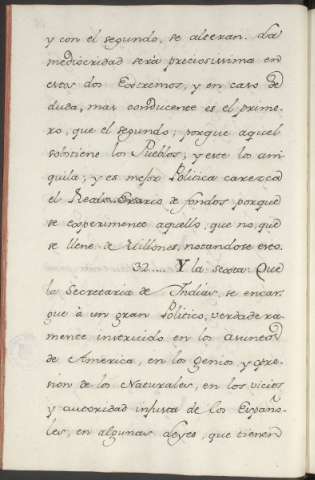 y con el segundo, se alteran. La
mediocridad será preciosissima en
estos dos Extremos, y en caso de
duda, mas conducente es el prime-
ro, que el segundo; porque aquel
sobstiene los Pueblos, y este los ani-
quila; y es mejor Politica carezca
el Real Erario de fondos porque
se experimente aquello, que no, que
se llene de Millones, notandose esto.
32..... Y la sexta: Que
la Secretaria de Indias, se encar-
gue à un gran Politico, verdadera-
mente instruido en los asuntos
de America, en los Genios y opre-
sion de los Naturales, en los vicios
y autoridad injusta de los Españo-
les, en algunas Leyes, que tienen